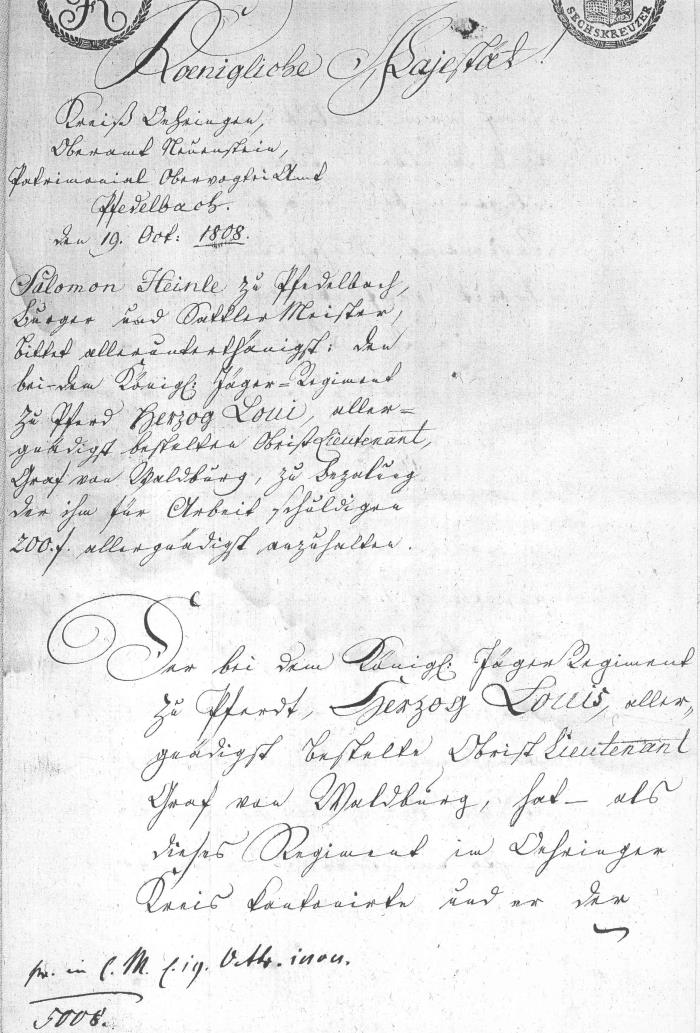 SECHSKREUZER
Koenigliche Majestæt!
Kreiß Oehringen,
Oberamt Neuenstein,
Patrimonial Obervogtei Amt
Pfedelbach.
den 19. Oct: 1808.
Salomon Heinle zu Pfedelbach,
Burger und Sattler Meister,
bittet allerunterthänigst: den
bei dem Königl: Jäger=Regiment
zu Pferd Herzog Loui, aller=
gnädigst bestelten Obrist Lieutenant,
Graf von Waldburg, zu Bezalung
der ihm für Arbeit schuldigen
200.f. allergnädigst anzuhalten.
Der bei dem Königl: Jäger Regiment
zu Pferdt, Herzog Louis, aller„
gnädigst bestelte Obrist Lieutenant
Graf von Waldburg, hat – als
dieses Regiment im Oehringer
Kreis kantonirte und er der
pr. in C. M.
5008.